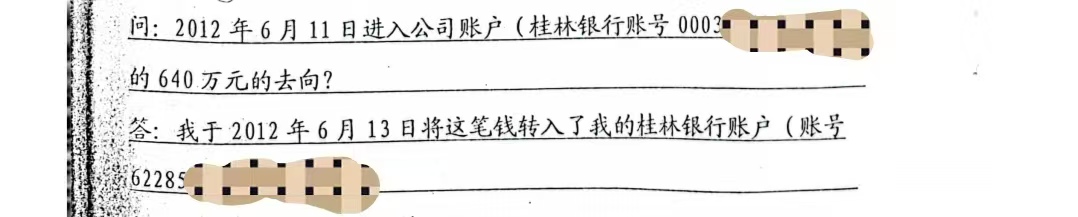 问：2012年6月11日进入公司账户（桂林银行账号0003
的640万元的去向？
答：我于2012年6月13日将这笔钱转入了我的桂林银行账户（账号
62285